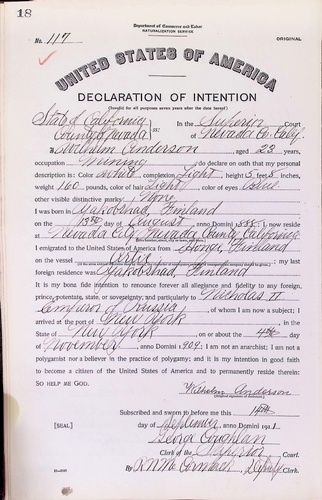 18
Department of Commerce and Labor
NATURALIZATION SERVICE
No. 117
ORIGINAL
UNITED STATES OF AMERICA
DECLARATION OF INTENTION
(Invalid for all purposes seven years after the date hereof)
State of California
County of Nevada ss: In the Superior Court of Nevada Co. Calif.
I, Wilhelm Anderson, aged 23 years,
occupation Mining, do declare on oath that my personal
description is: Color White, complexion Light, height 5 feet 8 inches,
weight 160 pounds, color of hair Light, color of eyes Blue
other visible distinctive marks None
I was born in Jakobstad, Finland
on the day of August, anno Domini 1888; I now reside
at Nevada City, Nevada County, California
I emigrated to the United States of America from Finland
on the vessel ; my last
foreign residence was Jakobstad, Finland
It is my bona fide intention to renounce forever all allegiance and fidelity to any foreign
prince, potentate, state, or sovereignty, and particularly to Nicholas II
Emperor of Russia, of whom I am now a subject; I
arrived at the port of New York, in the
State of New York on or about the 4th day
of November, anno Domini 1909; I am not an anarchist; I am not a
polygamist nor a believer in the practice of polygamy; and it is my intention in good faith
to become a citizen of the United States of America and to permanently reside therein:
SO HELP ME GOD.
Wilhelm Anderson
(Original signature of declarant.)
Subscribed and sworn to before me this 14th
[SEAL] day of September, anno Domini 1911
George Coughlan
Clerk of the Superior Court.
By R. N. McCormack, Deputy Clerk.